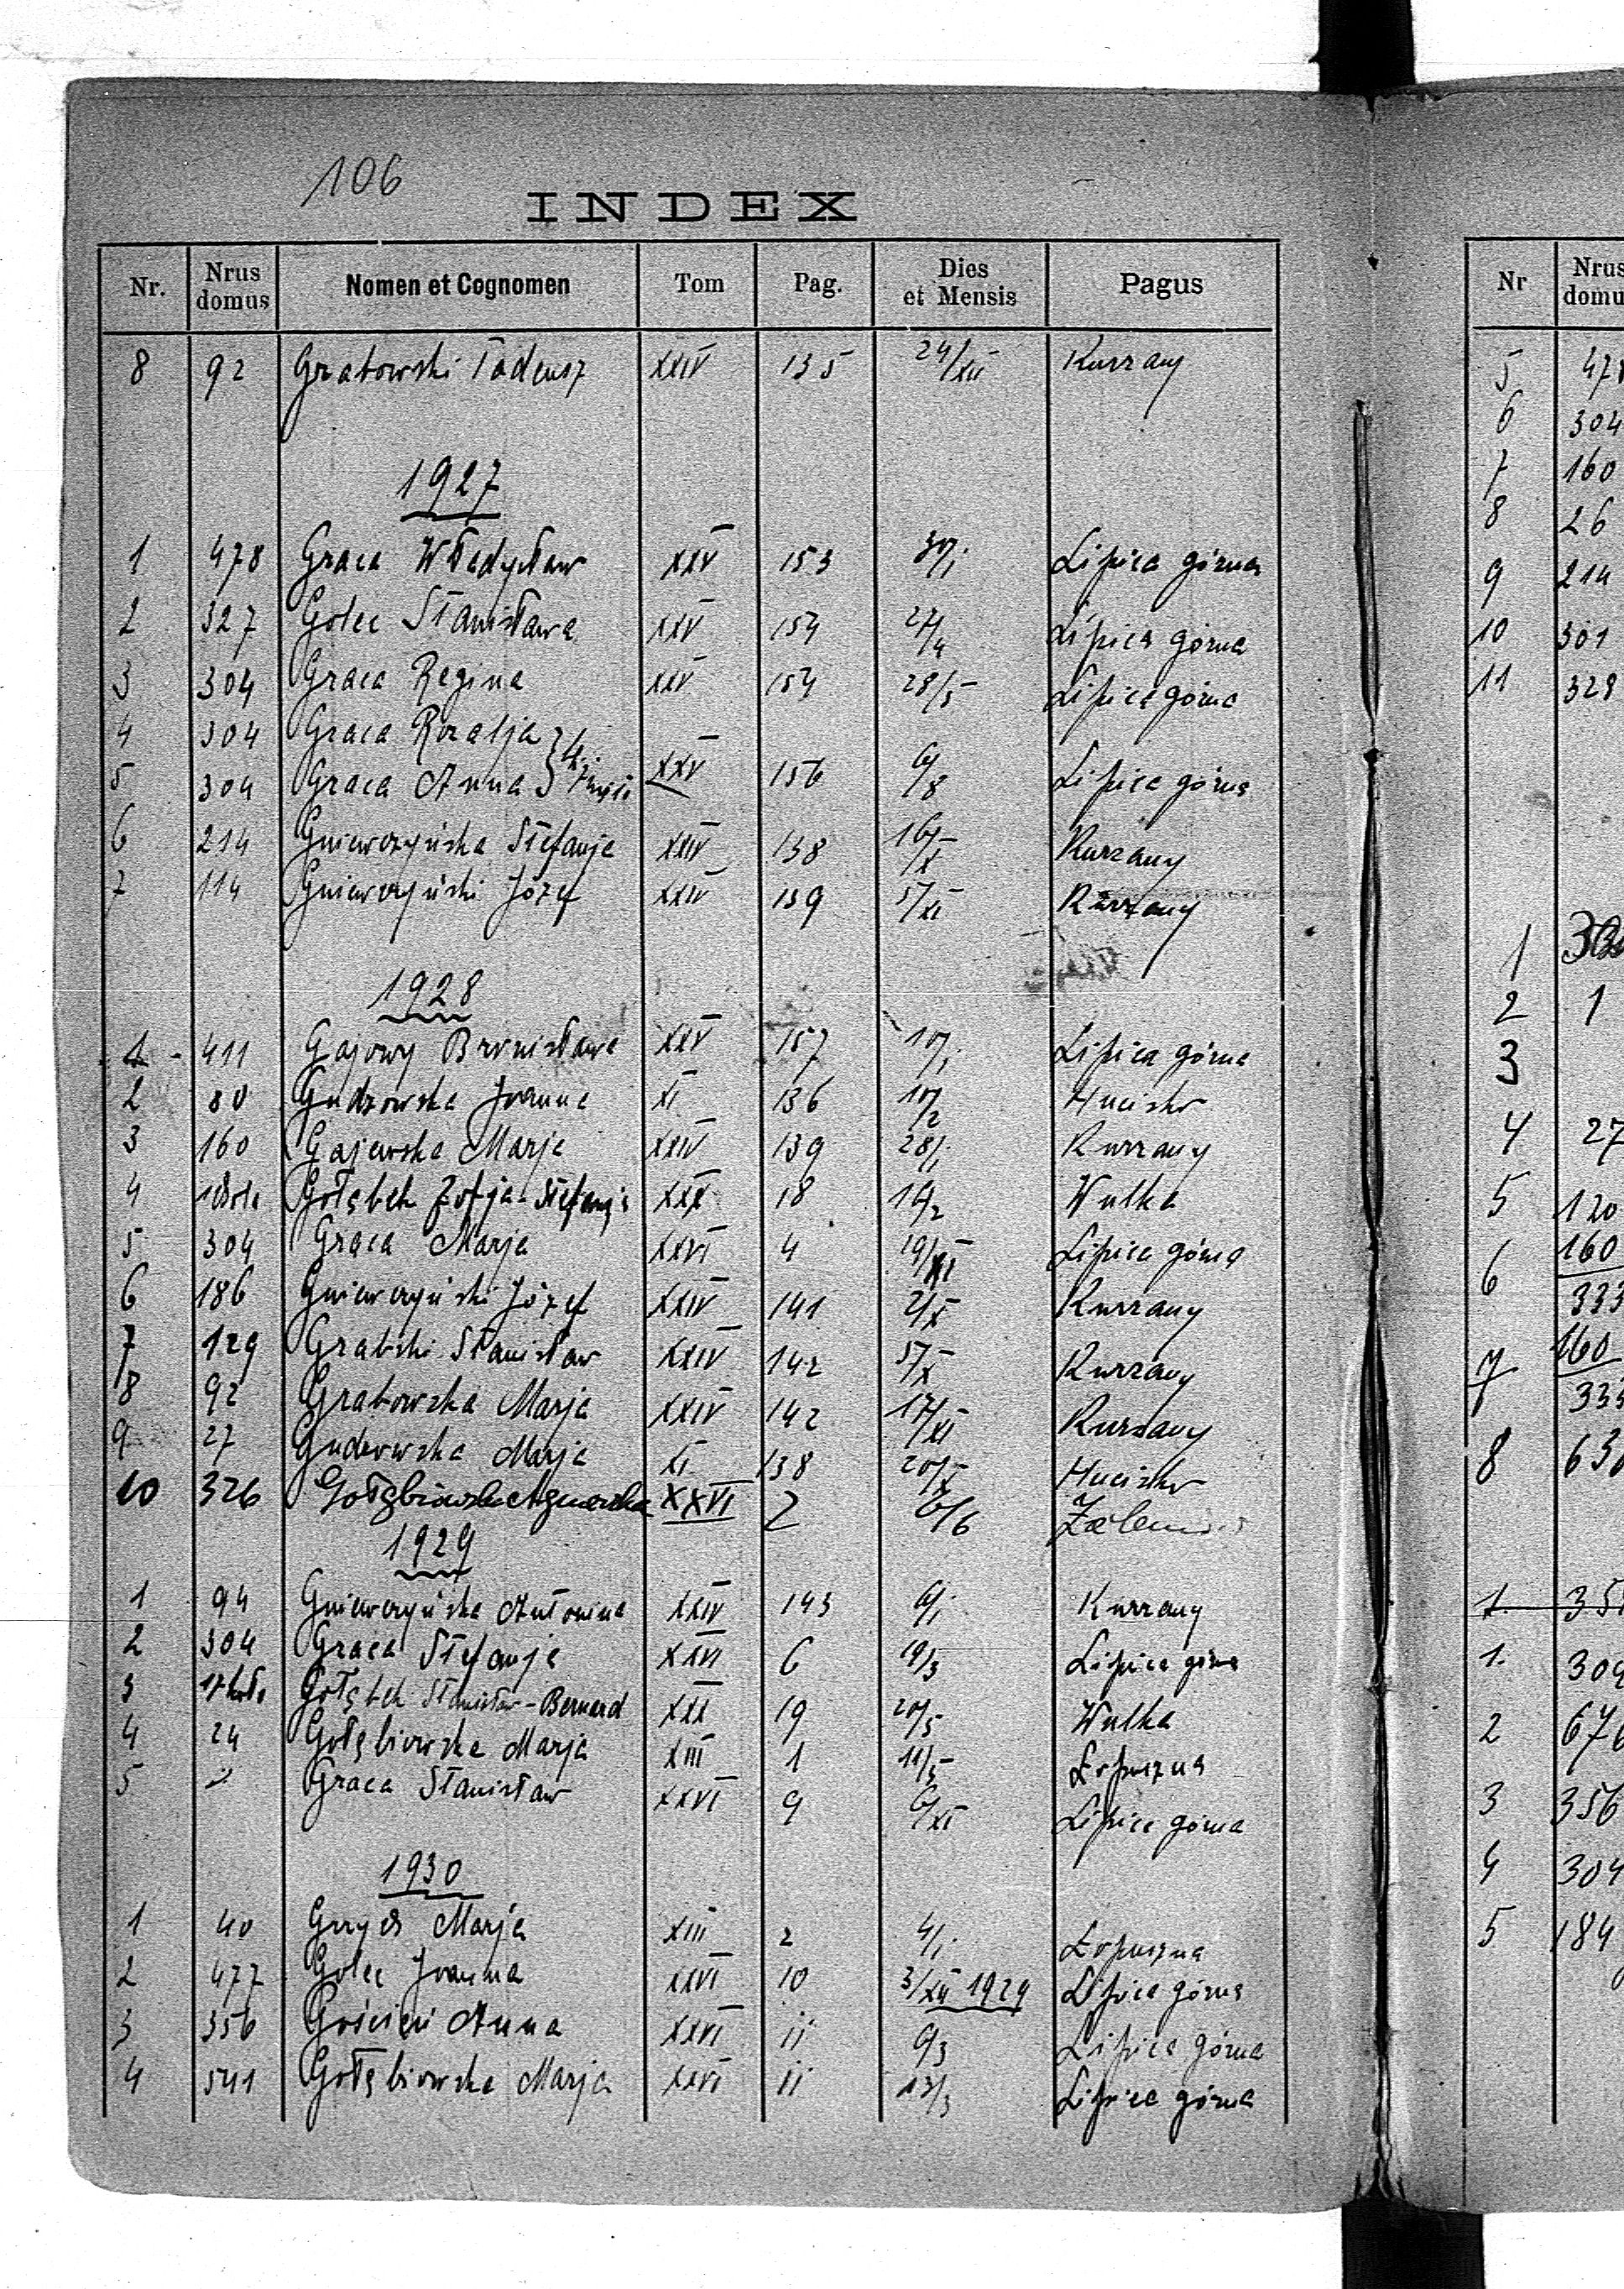 106
INDEX
Nr. Nrus domus Nomen et Cognomen Tom Pag. Dies et Mensis Pagus
8 92 Grabowski Tadeusz XXIV 135 24/XII Kurzany
1927
1 478 Graca Władysław XXV 153 30/1. Lipica górna
2 327 Golec Stanisława XXV 154 27/4 Lipica górna
3 304 Graca Regina XXV 154 28/5 Lipica górna
4 304 Graca Rozalja
5 304 Graca Anna XXV 156 6/8 Lipica górna
6 214 Gniewczyńska Stefanja XXIV 138 16/X Kurzany
7 114 Gniewczyński Józef XXIV 139 5/XI Kurzany
1928
1 411 Gajowy Bronisława XXV 157 10/1. Lipica górna
2 80 Gudzowska Joanna XI 136 10/2 Hucisko
3 160 Gajewska Marja XXIV 139 28/1. Kurzany
4 Gołąbek Zofja-Stefanja XXX 18 16/2 Wulka
5 304 Graca Marja XXVI 4 19/XI Lipica górna
6 186 Gniewczyński Józef XXIV 141 2/X Kurzany
7 129 Grabski Stanisław XXIV 142 5/X Kurzany
8 92 Grabowska Marja XXIV 142 17/XI Kurzany
9 27 Gudzowska Marja XI 138 20/X Hucisko
10 326 XXVI 2 6/6
1929
1 94 Gniewczyńska Antonina XXIV 143 6/1. Kurzany
2 304 Graca Stefanja XXVI 6 19/3 Lipica górna
3 Gołąbek Stanisław-Bernard XXX 19 20/5 Wulka
4 24 Gołębiowska Marja XIII 1 11/5 Łopuszna
5 Graca Stanisław XXVI 9 6/XI Lipica górna
1930
1 40 Marja XIII 2 4/1. Łopuszna
2 477 Golec Joanna XXVI 10 3/XII 1929 Lipica górna
3 356 Gościej Anna XXVI 11 9/3 Lipica górna
4 541 Gołębiowska Marja XXVI 11 13/3 Lipica górna
Nr Nrus domu
5 478
6 304
7 160
8 26
9 214
10 301
11 328
1
2 1
3
4 27
5 120
6 160
333
7 160
333
8 63
1. 35
1. 304
2 676
3 356
4 304
5 184